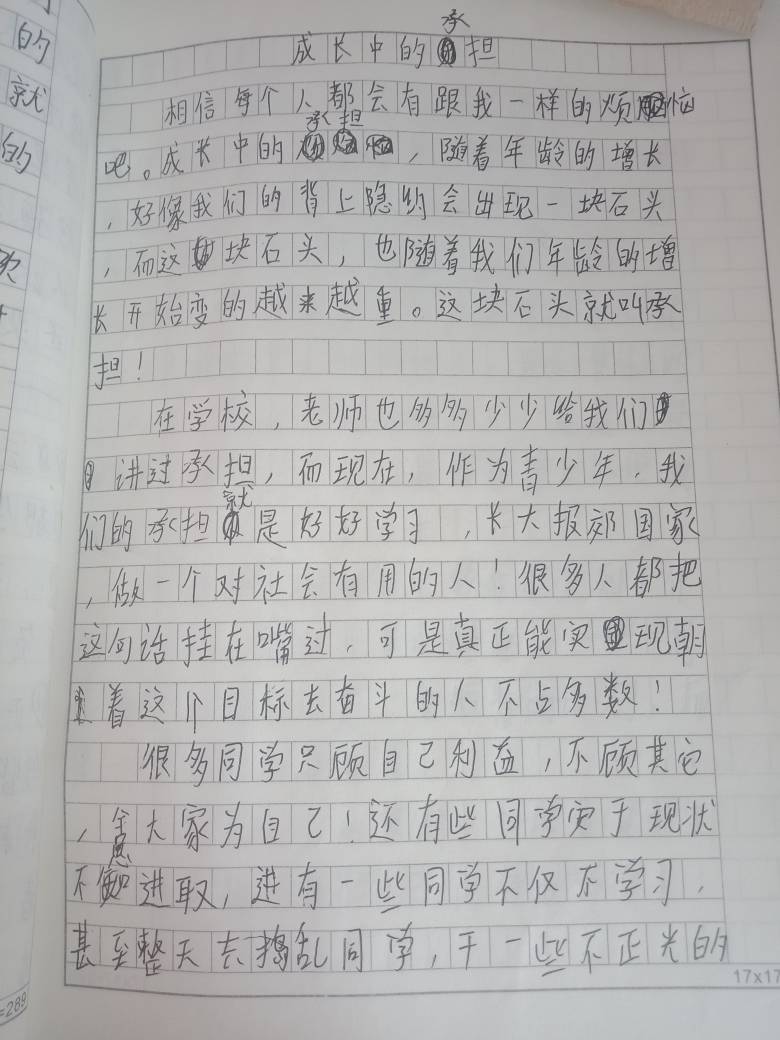 成长中的承担
相信每个人都会有跟我一样的烦恼
吧。成长中的承担，随着年龄的增长
，好像我们的背上隐约会出现一块石头
，而这块石头，也随着我们年龄的增
长开始变的越来越重。这块石头就叫承
担！
在学校，老师也多多少少给我们
讲过承担，而现在，作为青少年，我
们的承担就是好好学习，长大报效国家
，做一个对社会有用的人！很多人都把
这句话挂在嘴过，可是真正能实现朝
着这个目标去奋斗的人不占多数！
很多同学只顾自己利益，不顾其它
，舍大家为自己！还有些同学安于现状
不思进取，进有一些同学不仅不学习，
甚至整天去捣乱同学，干一些不正光的
17x17
=289
的
就
的